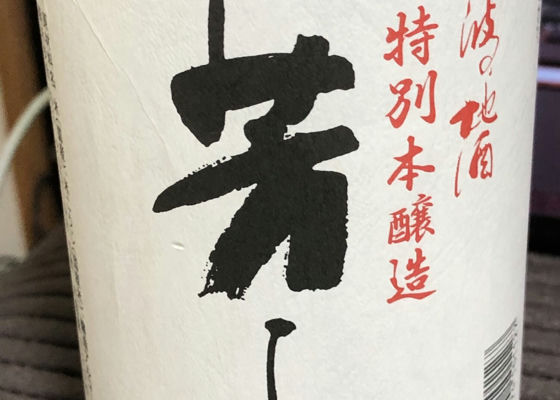 波の地酒
特別本醸造
芳